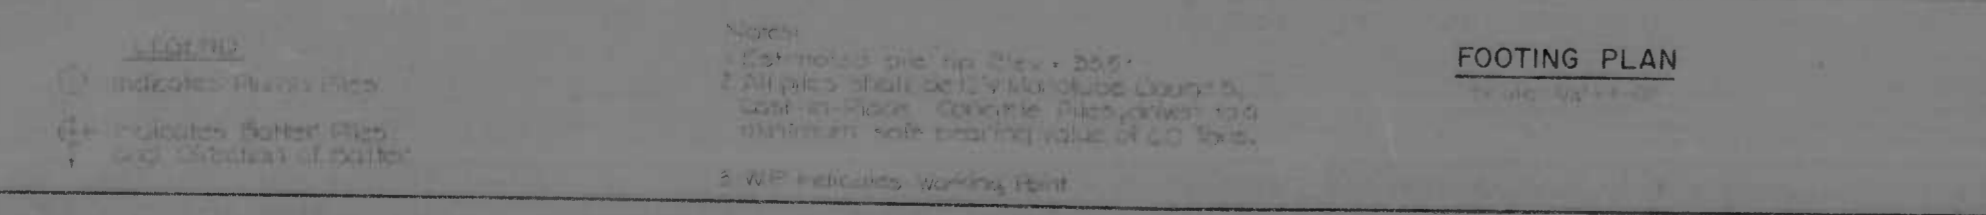 LEGEND
Indicates Plumb Piles
Indicates Batter Piles
and Direction of Batter
Notes:
Estimated pile tip Elev.
2 All piles shall be Monotube
Cast-in-Place Concrete Piles, driven to a
minimum safe bearing value of 60 Tons.
3 W.P. indicates Working Point
FOOTING PLAN
Scale: